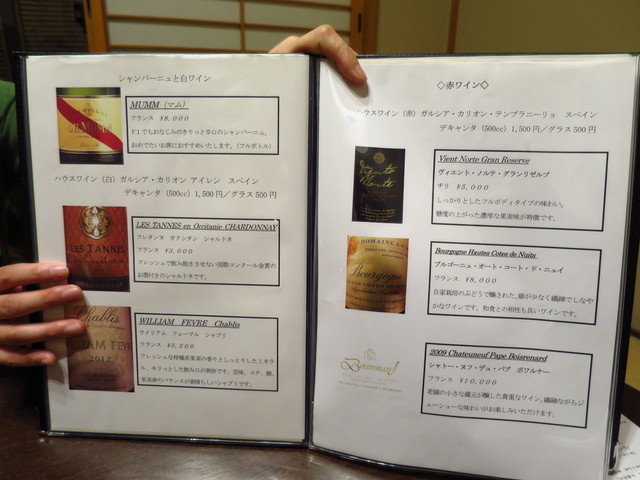 シャンパーニュと白ワイン
MUMM (マム)
フランス ¥8,000
F1でもおなじみのきりっと辛口のシャンパーニュ。
おめでたいお席におすすめいたします。(フルボトル)
ハウスワイン (白) ガルシア・カリオン アイレン スペイン
デキャンタ (500cc) 1,500円/グラス500円
LES TANNES
LES TANNES en Occitanie CHARDONNAY
レタンヌ オクシタン シャルドネ
フランス
フレッシュで飲み飽きさせない国際コンクール金賞の
お墨付きのシャルドネです。
Chablis
2012
WILLIAM FEVRE Chablis
ウイリアム フェーブル シャブリ
フランス
◇赤ワイン◇
ハウスワイン (赤) ガルシア・カリオン・テンプラニーリョ スペイン
デキャンタ (500cc) 1,500円/グラス500円
Viento Norte
Vient Norte Gran Reserve
ヴィエント・ノルテ・グランリゼルブ
チリ ¥5,000
しっかりとしたフルボディタイプの味わい。
糖度の上がった濃厚な果実味が特徴です。
DOMAINE
Bourgogne
Bourgogne Hautes Cotes de Nuits
ブルゴーニュ・オート・コート・ド・ニュイ
フランス ¥8,000
自家栽培のぶどうで醸された、癖が少なく繊細でしなや
かなワインです。和食との相性も良いワインです。
Boisrenard
2009 Chateuneuf Pape Boisrenard
シャトー・ヌフ・デュ・パプ ボワルナー
フランス ¥10,000
老舗の小さな蔵元が醸した貴重なワイン。繊細ながらジ
ューシーな味わいがお楽しみいただけます。